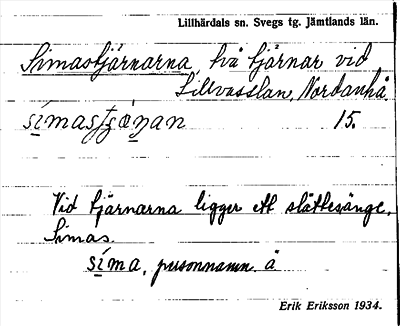 Lillhärdals sn. Svegs tg. Jämtlands län.
Simastjärnarna, två tjärnar vid
Lillvasslan, Nordanhå.
15.
Vid tjärnarna ligger ett slåttesänge,
Simas.
sima, personnamn å
Erik Eriksson 1934.